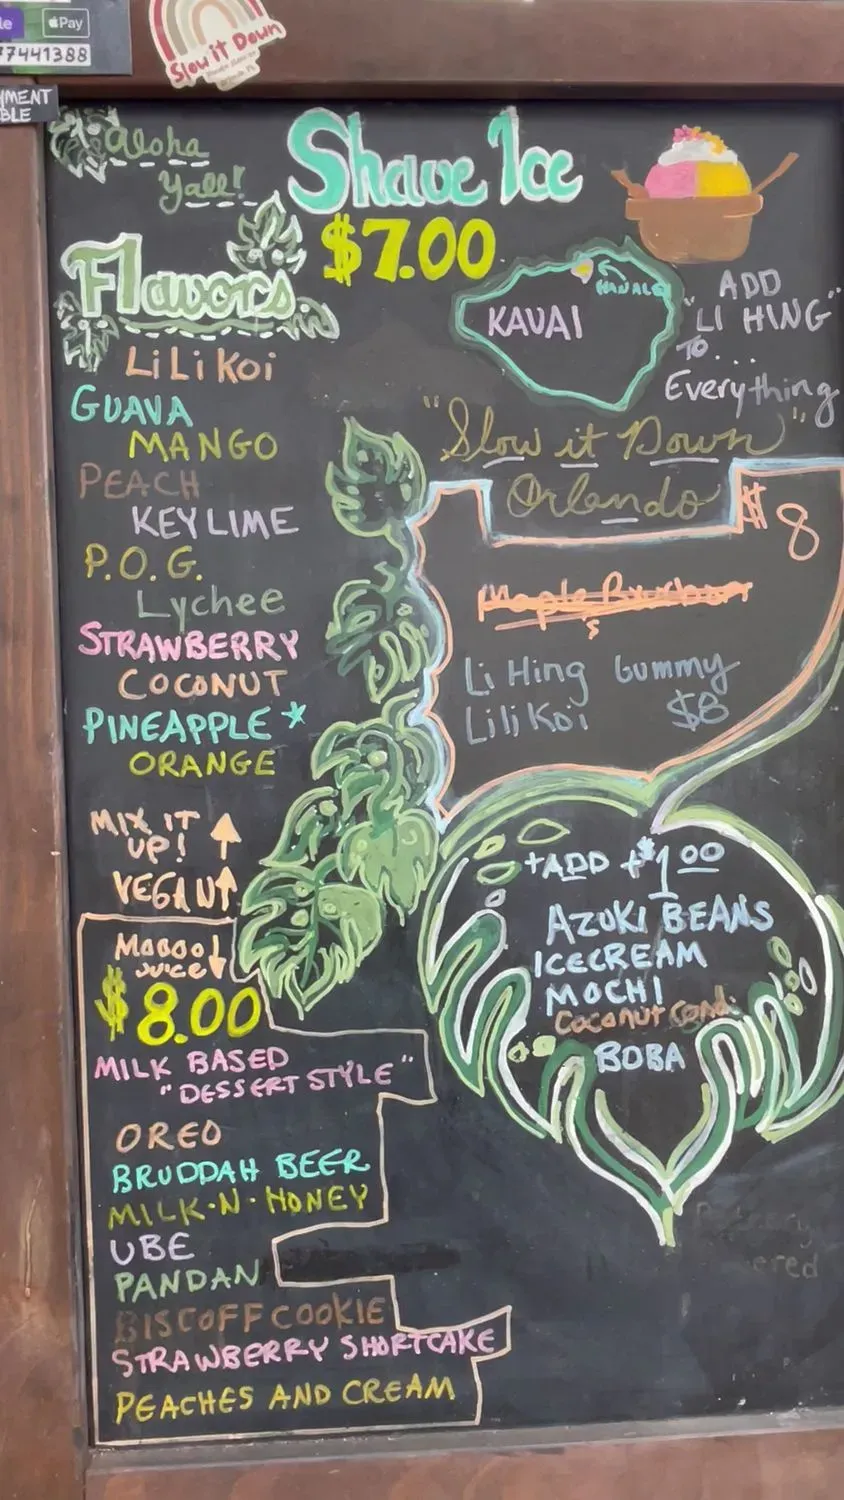 Pay
77441388
Slow it Down
YMENT
BLE
Aloha
Yall!
Shave Ice
$7.00
Flavors
LiLiKoi
GUAVA
MANGO
PEACH
KEY LIME
P.O.G.
Lychee
STRAWBERRY
COCONUT
PINEAPPLE *
ORANGE
MIX IT
UP!
VEGAN
KAUAI
HANALEI
ADD
"LI HING"
TO...
Everything
"Slow it Down"
Orlando
$8
Li Hing Gummy
LiliKoi $8
+ADD +$1.00
AZUKI BEANS
ICECREAM
MOCHI
Coconut
BOBA
Moooo
Juice
$8.00
MILK BASED
"DESSERT STYLE"
OREO
BRUDDAH BEER
MILK·N·HONEY
UBE
PANDAN
BISCOFF COOKIE
STRAWBERRY SHORTCAKE
PEACHES AND CREAM